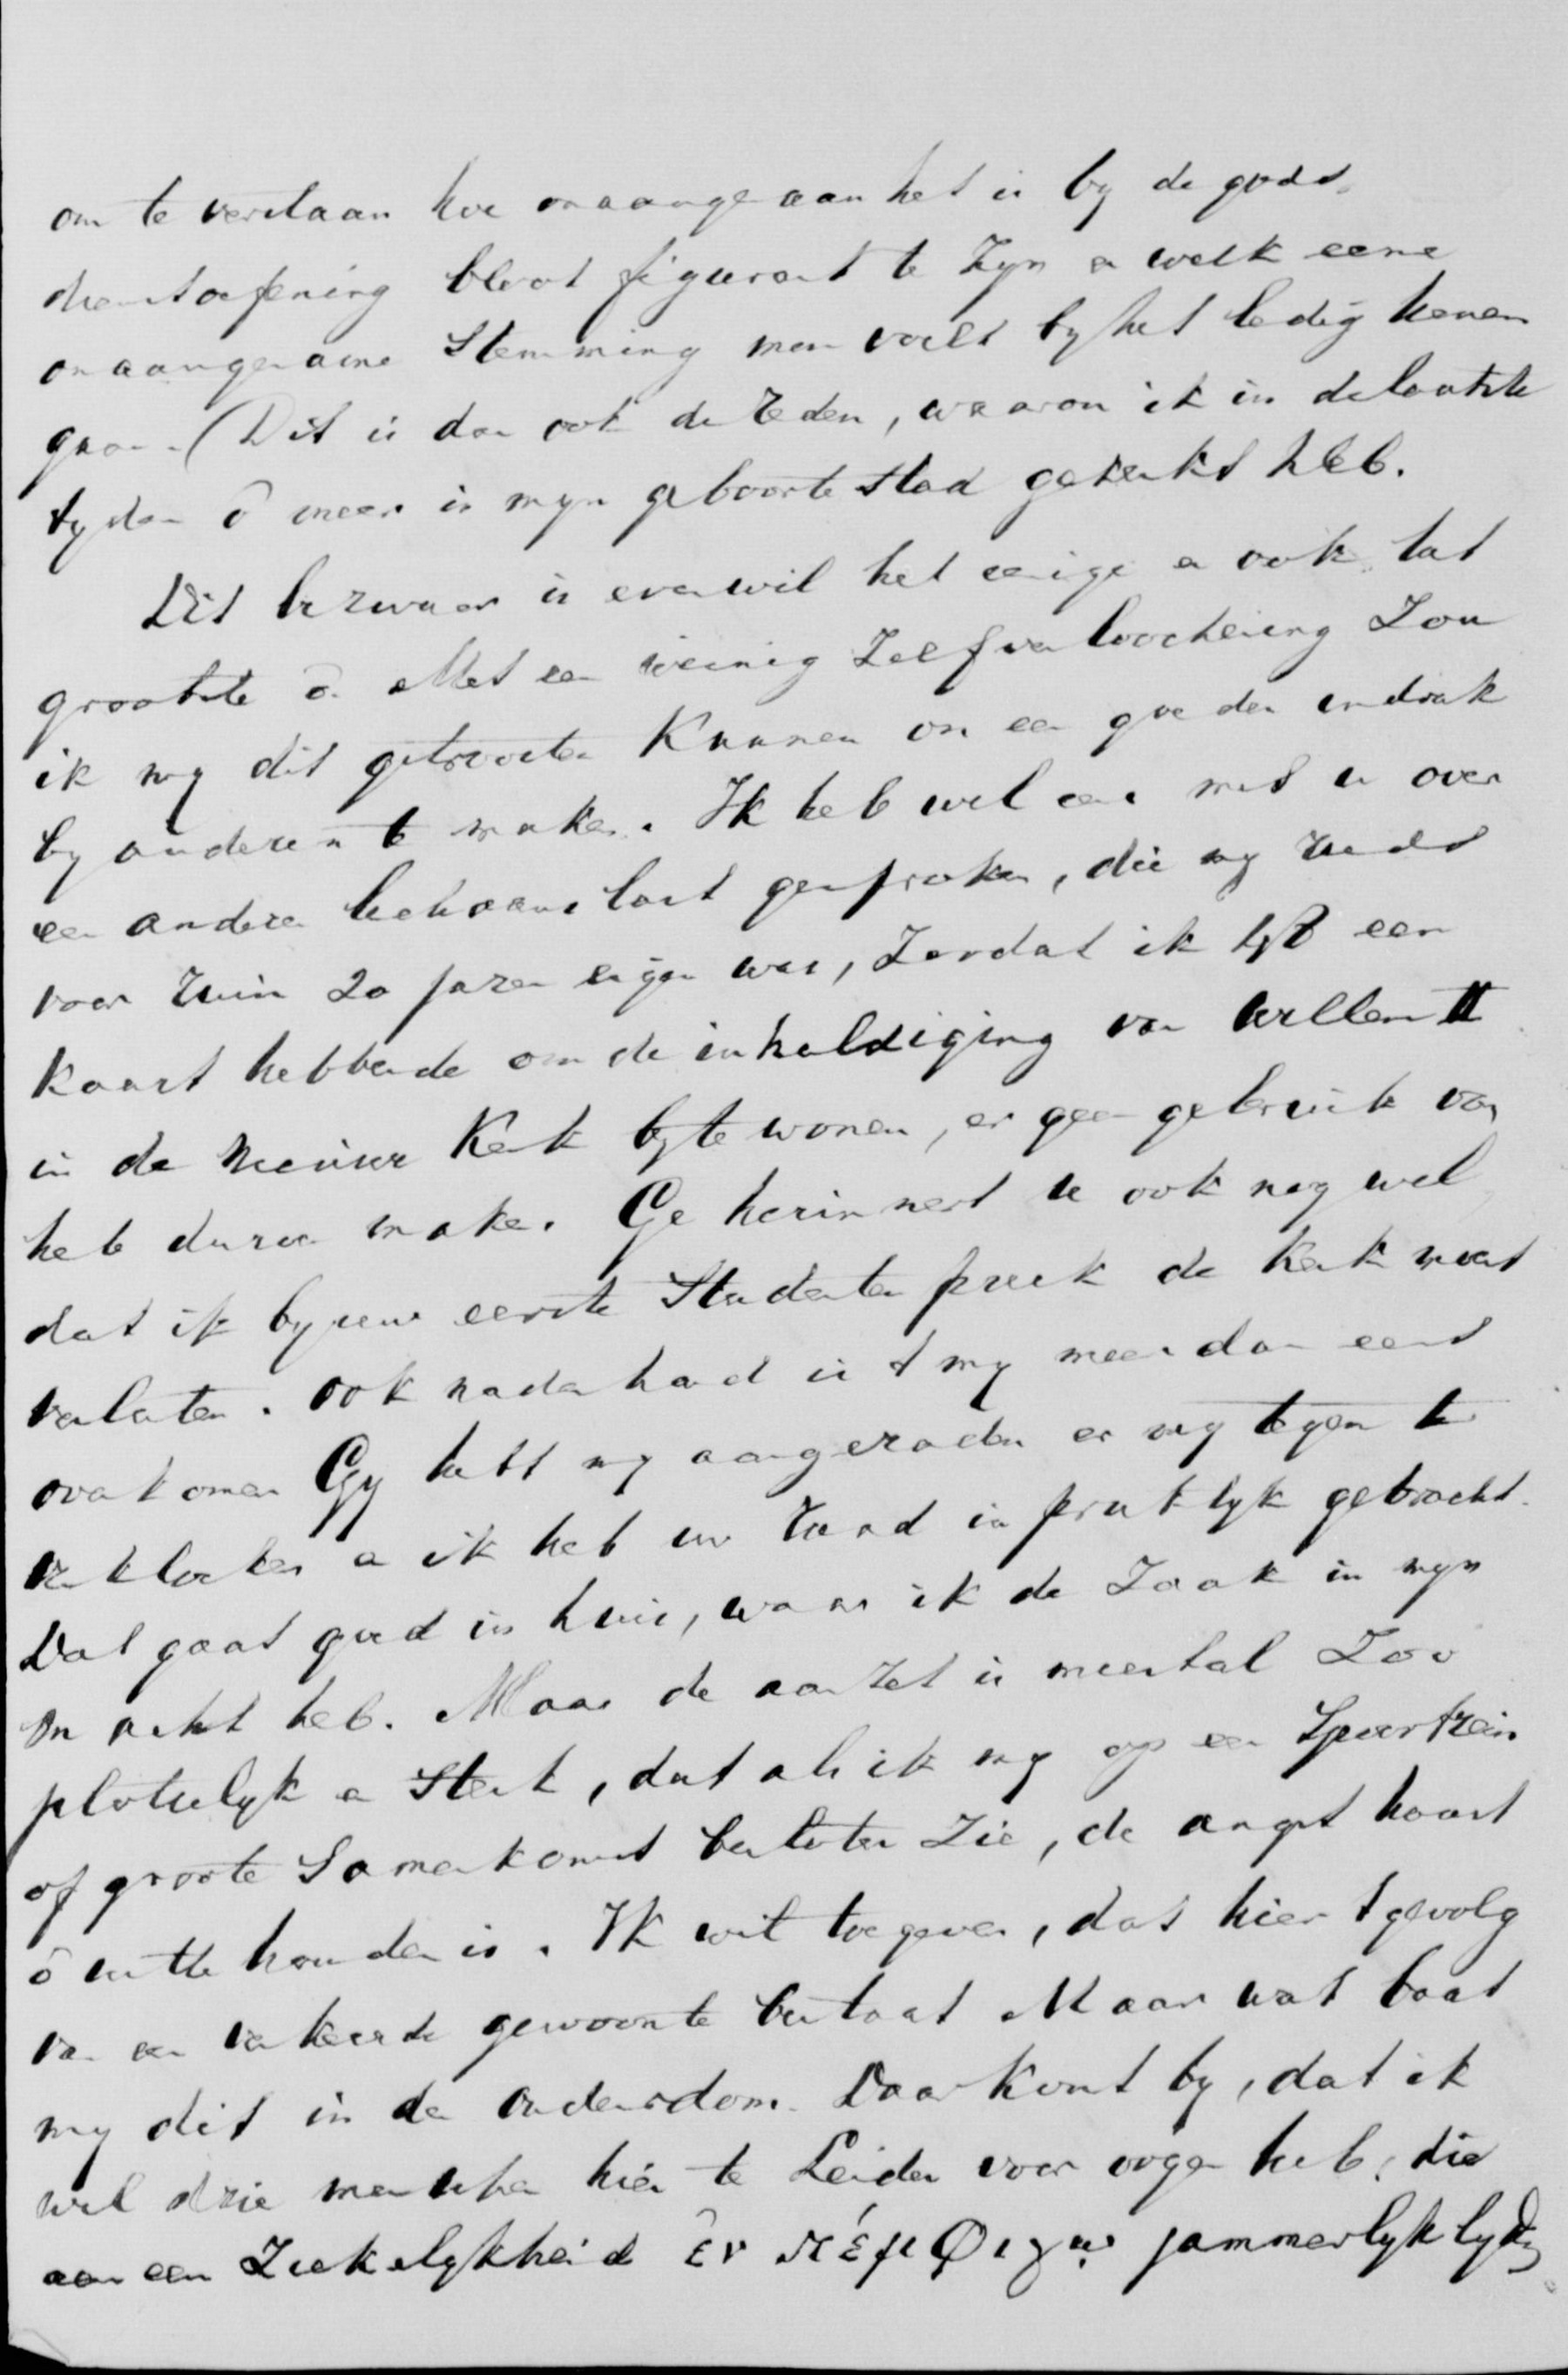 om te verstaan hoe onaangenaam het is by de gods-
dienstoefening bloot figurant te zyn en welk eene
onaangename stemming men voelt by het ledig henen
gaan. (Dit is dan ook de reden, waarom ik in de laatste
tyden ō meer in myn geboortestad gekerkt heb.
Dit bezwaar is evenwel het eenige en ook tat
grootste ō. Met een weinig zelfverloochening zou
ik my dit getroosten kunnen om een goeden indruk
by anderen te maken. Ik heb wel eens met u over
een andere lichaamslast gesproken, die my reeds
voor ruim 20 jaren eigen was, zoodat ik tyd een
kaart hebbende om de inhuldiging van Willem II
in de Nieuwe Kerk by te wonen, er geen gebruik van
heb durven maken. Ge herinnert u ook nog wel
dat ik by uw eerste Studenten preek de Kerk moest
verlaten. Ook naderhand is 't my meer dan eens
overkomen Gy hebt my aangeraden er my tegen te
verkloeken en ik heb uw raad in praktyk gebracht.
Dat gaat goed in huis, waar ik de zaak in myn
onmacht heb. Maar de aanzet is meestal zoo
plotselyk en sterk, dat als ik my op een spoortrein
of groote samenkomst besloten zie, de angst haast
ō uit te houden is. Ik wil toegeven, dat hier 't gevolg
van een verkeerde gewoonte bestaat Maar wat baat
my dit in den ouderdom. Daar komt by, dat ik
wel drie menschen hier te Leiden voor oogen heb, die
aan een ziekelykheid ἐν πέμφιγῳ jammerlyk lyden